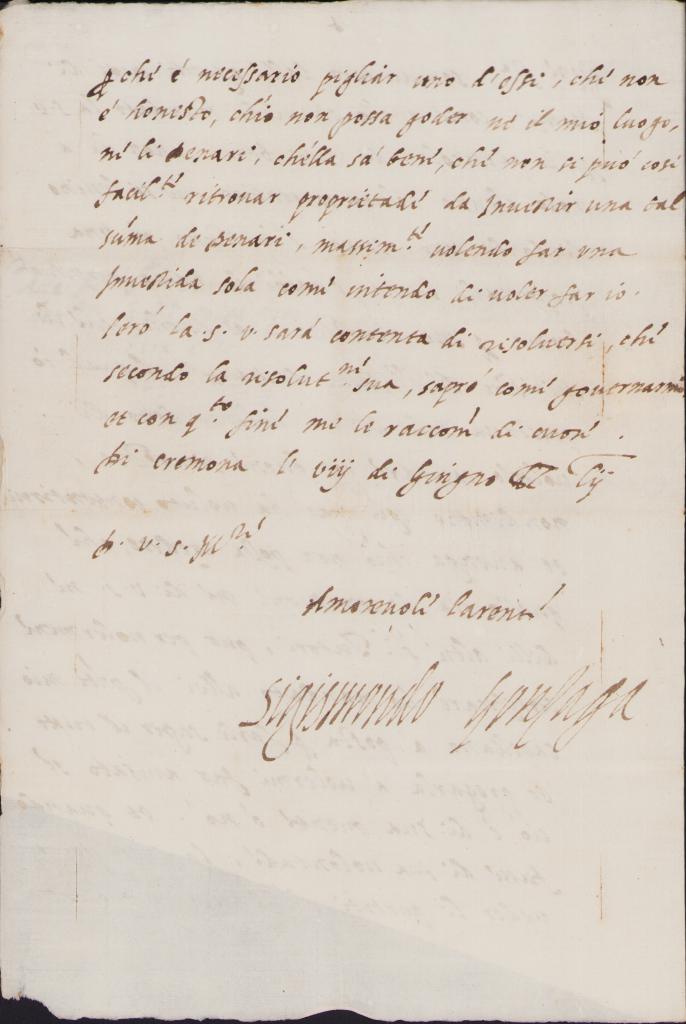 ꝑché é necessario pigliar uno d'essi, ché non
é honesto, ch'io non possa goder né il mio luogo,
né li denari, ch'ella sá bené, ché non si può cosi
facil.te ritrovar proprietadé da investir una tal
súma de denari, massim.te volendo far una
investida sola comé intendo di voler far io.
Però la .s. v. sará contenta di risolversi, ché
secondo la resolut.né sua, sapró comé governarmi
et con q.to finé me le raccom̃ di cuoré.
Di cremona l' viij di Giugno Lij
D. v. s. M.
Amorevolé Parenté
Sigismondo Gonzaga